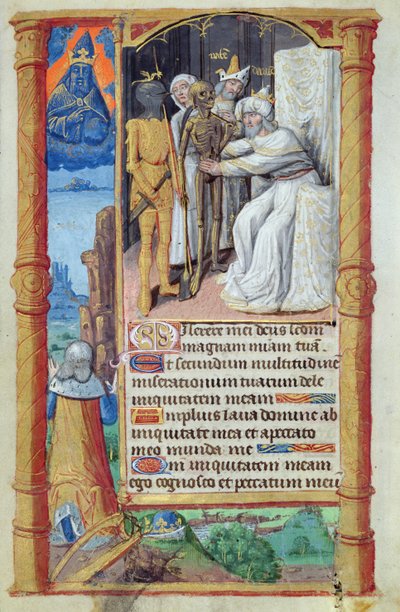 Miserere mei deus secdm
magnam miam tuā.
Et secundum multitudinē
miserationum tuarum dele
iniquitatem meam
Amplius laua domine ab
iniquitate mea et a peccato
meo munda me
Qm iniquitatem meam
ego cognosco et peccatum meū